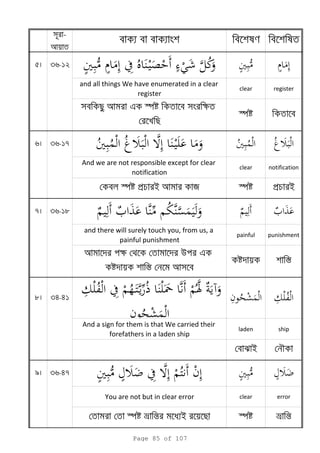 সূরা-
আয়াত
বাক্য বা বাক্যাংশ
বিশেষণ
বিশেষিত
৫।
৩৬-১২
وَكُلَّ شَيْءٍ أَحْصَيْنَاهُ فِي إِمَامٍ مُّبِينٍ
مُّبِينٍ
إِمَامٍ
and all things We have enumerated in a clear
register
clear
register
সবকিছু আমরা এক স্পষ্ট কিতাবে সংরক্ষিত
রেখেছি
স্পষ্ট
কিতাবে
৬।
৩৬-১৭
وَمَا عَلَيْنَا إِلَّا الْبَلَاغُ الْمُبِينُ
الْمُبِينُ
الْبَلَاغُ
And we are not responsible except for clear
notification
clear
notification
কেবল স্পষ্ট প্রচারই আমার কাজ
স্পষ্ট
প্রচারই
৭।
৩৬-১৮
وَلَيَمَسَّنَّكُم مِّنَّا عَذَابٌ أَلِيمٌ
أَلِيمٌ
عَذَابٌ
and there will surely touch you, from us, a
painful punishment
painful
punishment
আমাদের পক্ষ থেকে তোমাদের উপর এক
কষ্টদায়ক শাস্তি নেমে আসবে
কষ্টদায়ক
শাস্তি
৮।
৩৬-৪১
وَآيَةٌ لَّهُمْ أَنَّا حَمَلْنَا ذُرِّيَّتَهُمْ فِي الْفُلْكِ
الْمَشْحُونِ
الْمَشْحُونِ
الْفُلْكِ
And a sign for them is that We carried their
forefathers in a laden ship
laden
ship
বোঝাই
নৌকা
৯।
৩৬-৪৭
إِنْ أَنتُمْ إِلَّا فِي ضَلَالٍ مُّبِينٍ
مُّبِينٍ
ضَلَالٍ
You are not but in clear error
clear
error
তোমরা তো স্পষ্ট ভ্রান্তির মধ্যেই রয়েছো
স্পষ্ট
ভ্রান্তি
Page 85 of 107